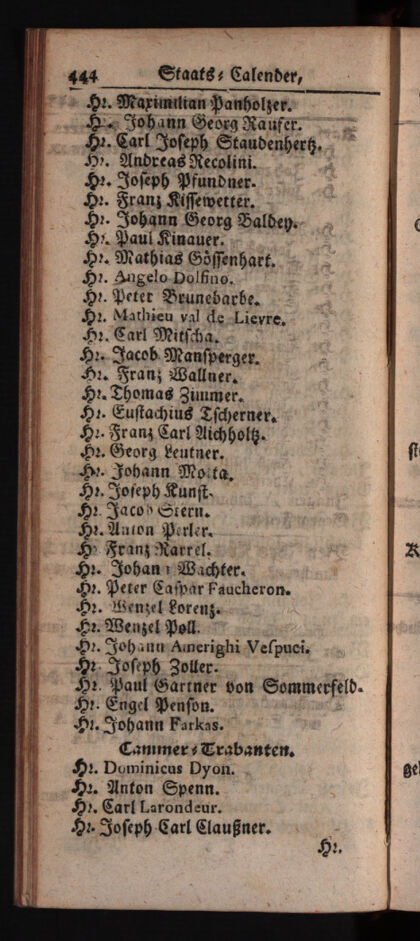 444 Staats-Calender,
Hr. Maximilian Panholzer.
Hr. Johann Georg Raufer.
Hr. Carl Joseph Staudenhertz.
Hr. Andreas Recolini.
Hr. Joseph Pfundner.
Hr. Franz Kissewetter.
Hr. Johann Georg Baldey.
Hr. Paul Kinauer.
Hr. Mathias Gössenhart.
Hr. Angelo Dolfino.
Hr. Peter Brunebarbe.
Hr. Mathieu val de Lievre.
Hr. Carl Mitscha.
Hr. Jacob Mansperger.
Hr. Franz Wallner.
Hr. Thomas Zimmer.
Hr. Eustachius Tscherner.
Hr. Franz Carl Aichholtz.
Hr. Georg Leutner.
Hr. Johann Motta.
Hr. Joseph Kunst.
Hr. Jacob Stern.
Hr. Anton Perler.
Hr. Franz Rarrel.
Hr. Johann Wachter.
Hr. Peter Caspar Faucheron.
Hr. Wenzel Lorenz.
Hr. Wenzel Poll.
Hr. Johann Amerighi Vespuci.
Hr. Joseph Zoller.
Hr. Paul Gartner von Sommerfeld.
Hr. Engel Penson.
Hr. Johann Farkas.
Cammer-Trabanten.
Hr. Dominicus Dyon.
Hr. Anton Spenn.
Hr. Carl Larondeur.
Hr. Joseph Carl Claußner.
Hr.